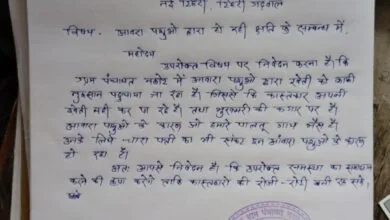 नई टिहरी, टिहरी गढ़वाल
विषय- आवारा पशुओं द्वारा हो रही क्षति के सम्बन्ध में,
महोदय
उपरोक्त विषय पर निवेदन करना है। कि
ग्राम पंचायत में आवारा पशुओं द्वारा खेती को काफी
नुकसान पहुचाया जा रहा है। जिससे कि कास्तकार अपनी
खेती नही कर पा रहे है। तथा भुखमरी की कगार पर है।
आवारा पशुओं के कारण जो हमारे पालतू गाय भैंस है।
उनके लिये चारा पत्ती का भी संकट इन आवारा पशुओं के कारण
हो रहा है।
अतः आपसे निवेदन है। कि उपरोक्त समस्या का समाधान
करने की कृपा करेंगे ताकि कास्तकारों की रोजी-रोटी बनी रह सके।
ग्राम पंचायत